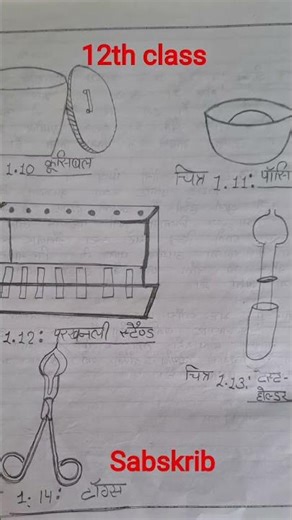 12th class
1.10 क्रूसिबल
चित्र 1.11: पॉर्सि
1.12: परखनली स्टैण्ड
चित्र 1.13: टेस्ट-
होल्डर
1.14: टॉंग्स
Sabskrib